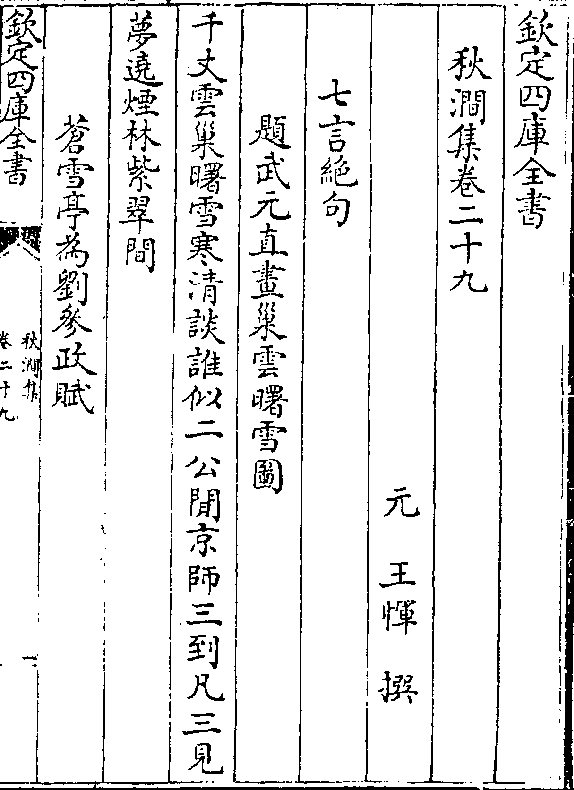 欽定四庫全書
秋澗集卷二十九
元　王惲　撰
七言絶句
題武元直畫巢雲曙雪圖
千丈雲巢曙雪寒清談誰似二公閒京師三到凡三見
夢遶煙林紫翠間
蒼雪亭為劉參政賦
欽定四庫全書
秋澗集
卷二十九
一